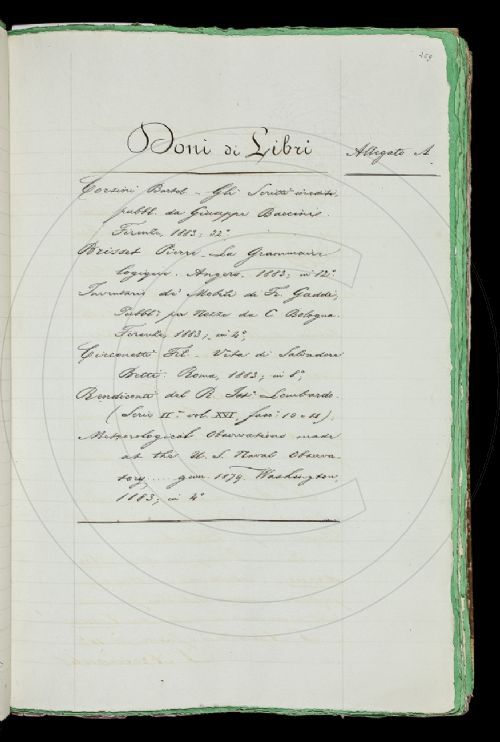 259
Doni di Libri
Allegato A.
Corsini Bartol. - Gli Scritti inediti
pubbl. da Giuseppe Baccini.
Firenze, 1883; 32.°
Brisset Pierre. La Grammaire
logique. Angers. 1883; in 12.°
Inventario di Mobili di Fr. Gaddi,
Pubbl. per Nozze da C. Bologna.
Firenze, 1883; in 4.°
Cicconetti Fil. - Vita di Salvatore
Betti. Roma, 1883; in 8.°
Rendiconti del R. Ist. Lombardo.
(Serie II.ª vol. XVI, fasc. 10 e 11).
Meteorological Observations made
at the U. S. Naval Observa-
tory, .... 1879. Washington,
1883; in 4.°